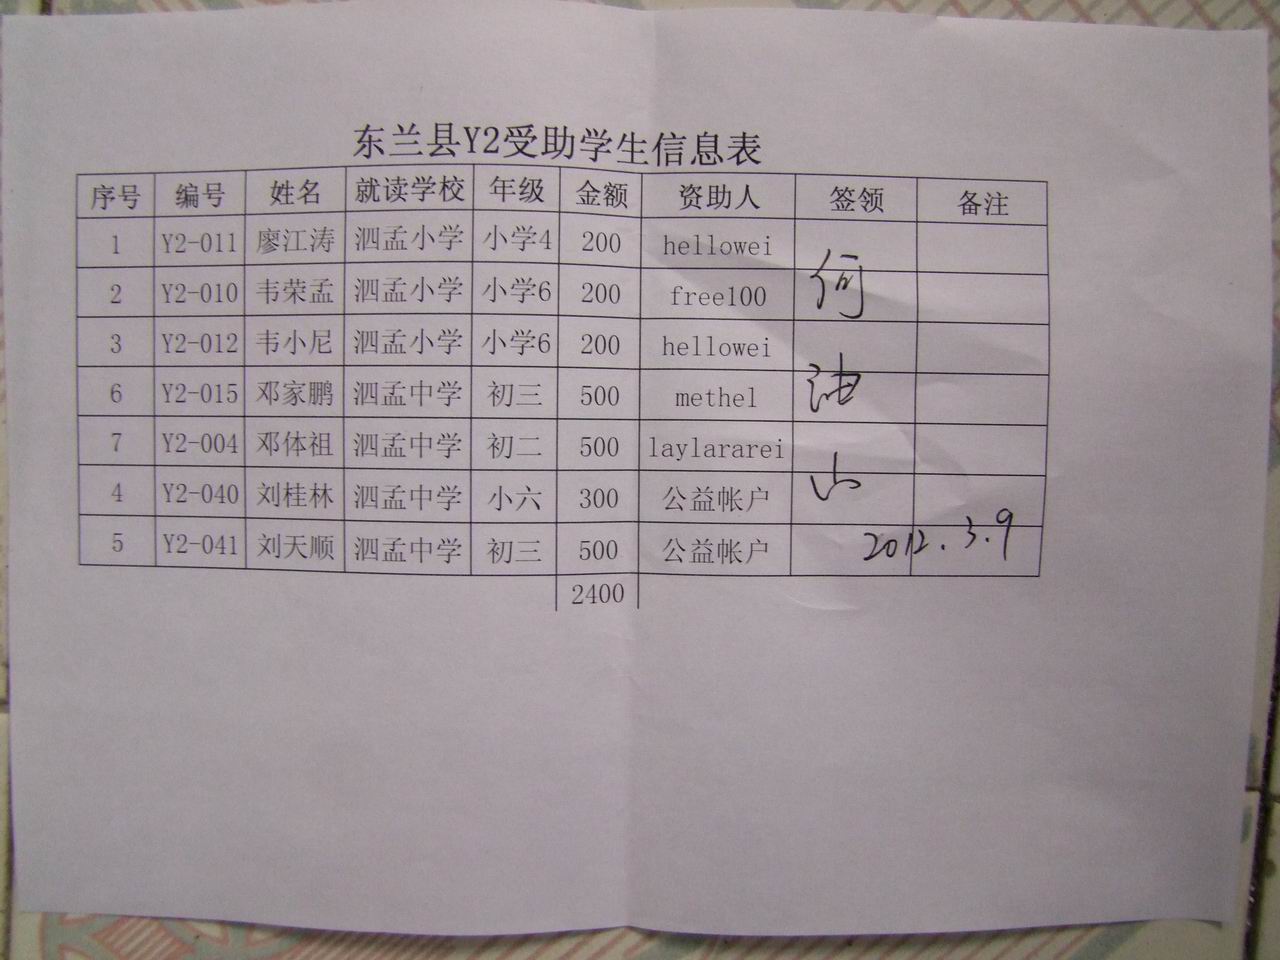 东兰县Y2受助学生信息表
序号 编号 姓名 就读学校 年级 金额 资助人 签领 备注
1 Y2-011 廖江涛 泗孟小学 小学4 200 hellowei
2 Y2-010 韦荣孟 泗孟小学 小学6 200 free100 何
3 Y2-012 韦小尼 泗孟小学 小学6 200 hellowei
6 Y2-015 邓家鹏 泗孟中学 初三 500 methel 油
7 Y2-004 邓体祖 泗孟中学 初二 500 laylararei
4 Y2-040 刘桂林 泗孟中学 小六 300 公益帐户 山
5 Y2-041 刘天顺 泗孟中学 初三 500 公益帐户 2012.3.9
2400